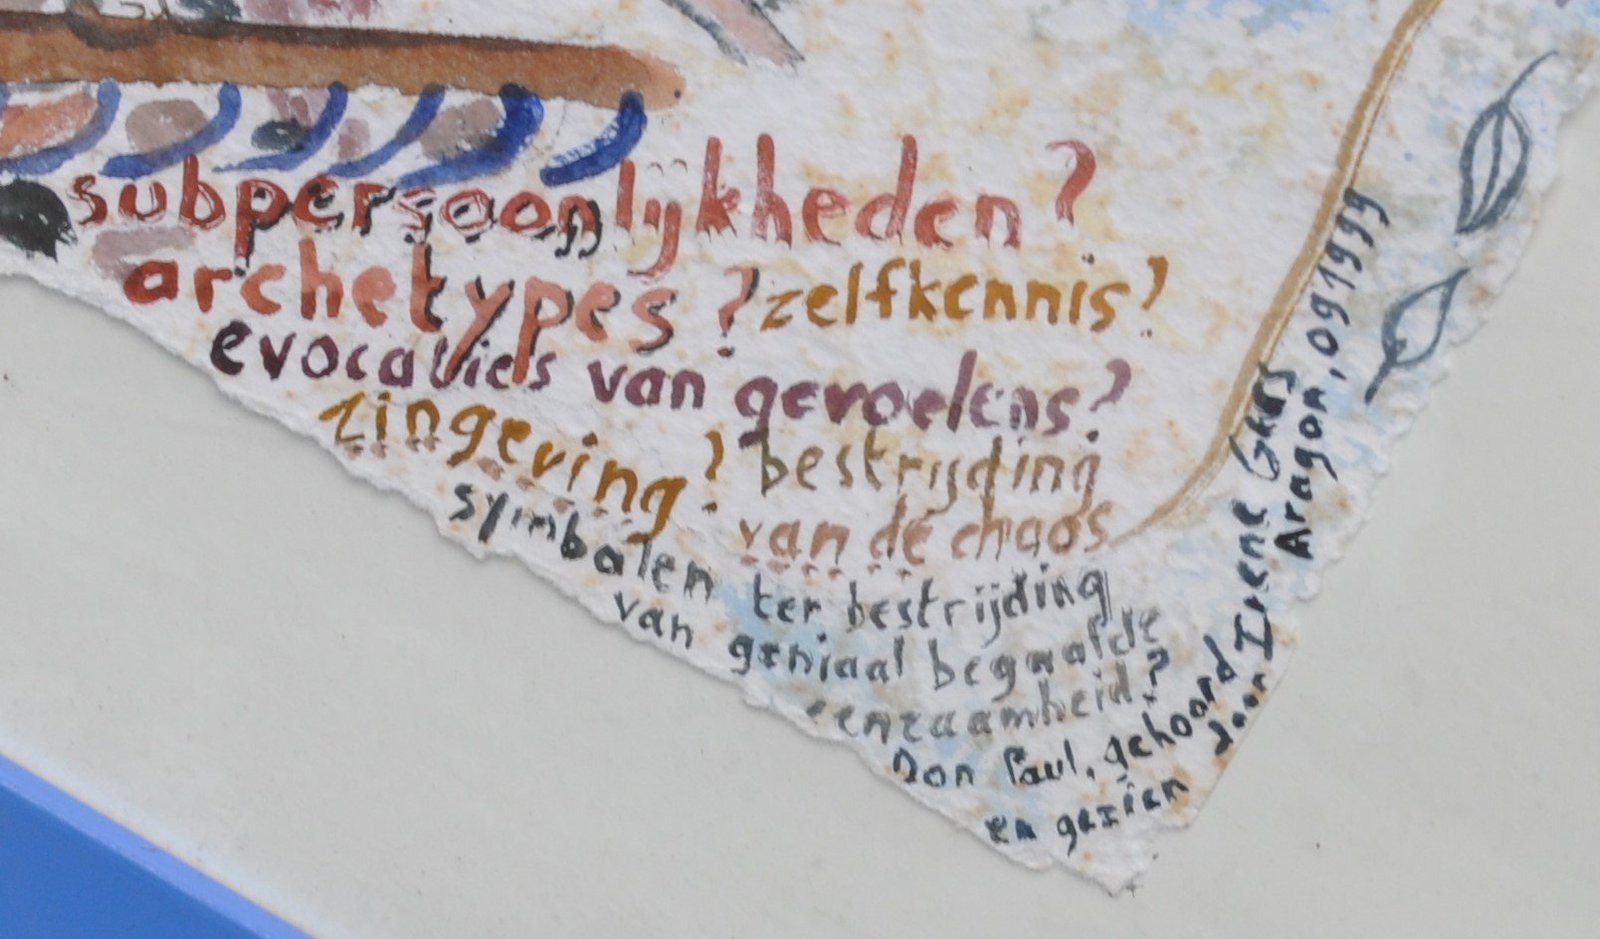 subpersoonlijkheden?
archetypes? zelfkennis?
evocaties van gevoelens?
zingeving? bestrijding
van de chaos
symbolen ter bestrijding
van geniaal begaafde
eenzaamheid?
Don Paul, gehoord
en gezien door Irene
Aragon, 091999